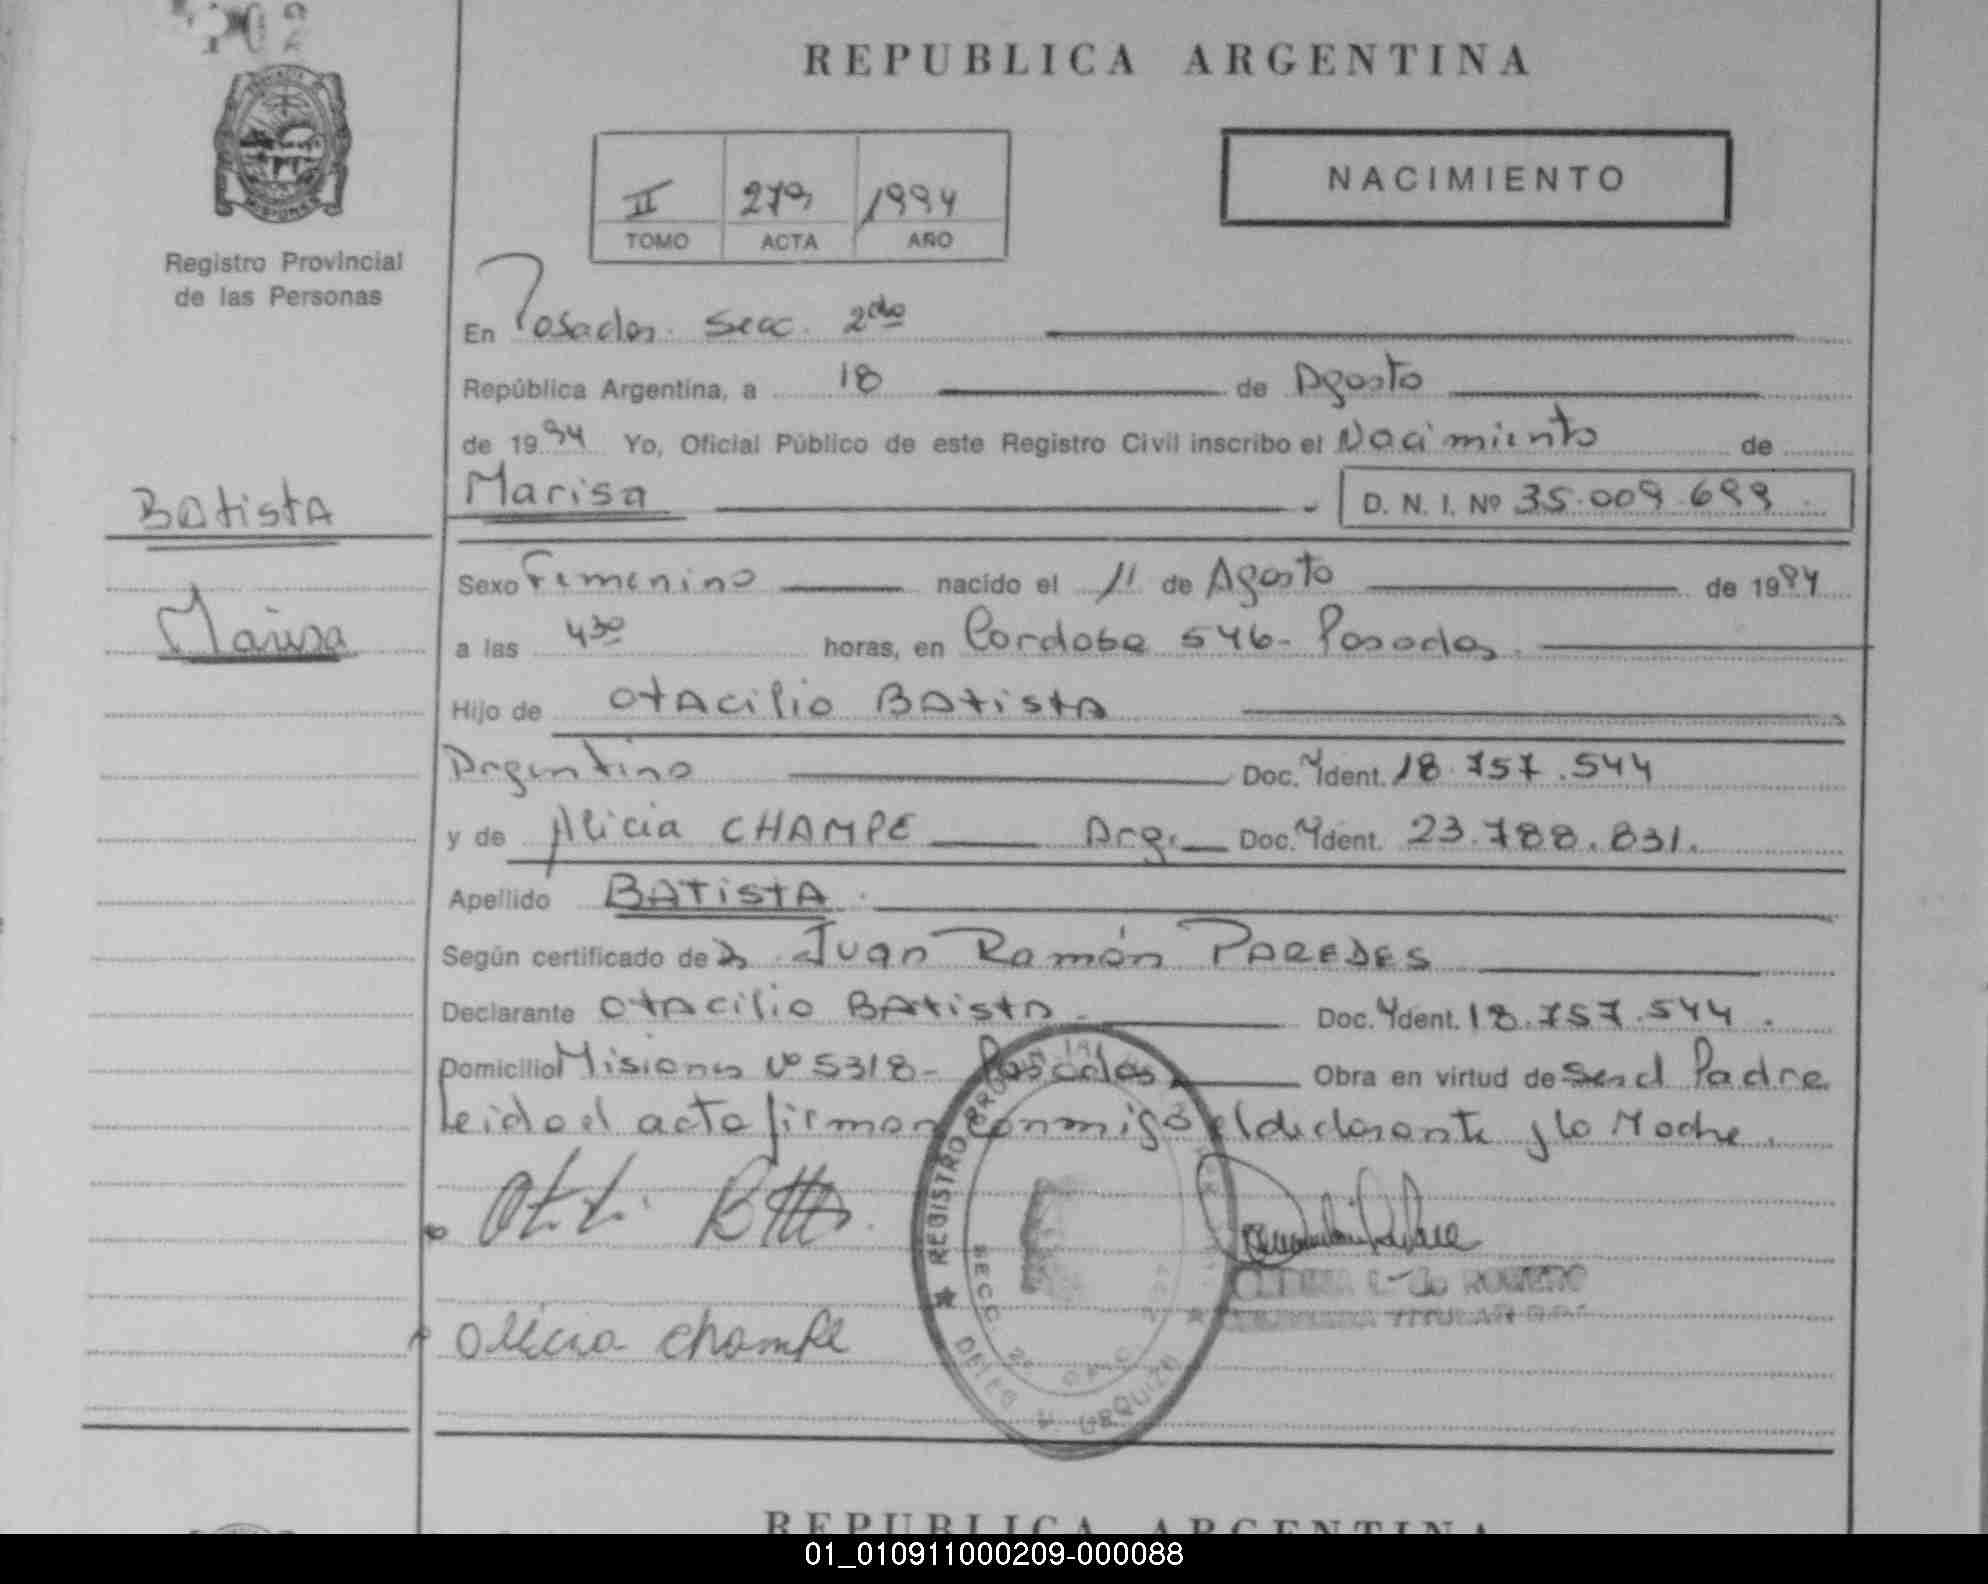 REPUBLICA ARGENTINA
NACIMIENTO
II 279 1994
TOMO ACTA AÑO
MISIONES
Registro Provincial
de las Personas
En Posadas. Secc. 2da
República Argentina, a 18 de Agosto
de 1994 Yo, Oficial Público de este Registro Civil inscribo el Nacimiento de
Batista
Marisa D. N. I. Nº 35.009.699
Sexo Femenino nacido el 11 de Agosto de 1994
Marisa
a las 430 horas, en Cordoba 546- Posadas
Hijo de Otacilio BAtistA
Argentino Doc. Ydent. 18.757.544
y de Alicia CHAMPE Arg. Doc. Ydent. 23.788.831.
Apellido BATistA
Según certificado de Juan Ramón PAREDES
Declarante Otacilio BAtista Doc. Ydent. 18.757.544.
Domicilio Misiones Nº 5318- Posadas Obra en virtud de Ser el Padre
Leido el acta firman conmigo el declarante y la Madre.
Alicia Champe
REGISTRO
SECC. 2º
URQUIZA
ROMERO
TITULAR
REPUBLICA ARGENTINA
01_010911000209-000088